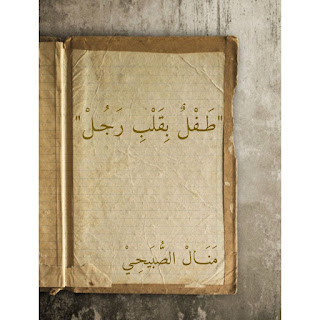 "طَـفْلٌ بِقَلْبِ رَجُـلْ"
مَنَـالْ الصُّبَيحِيْ